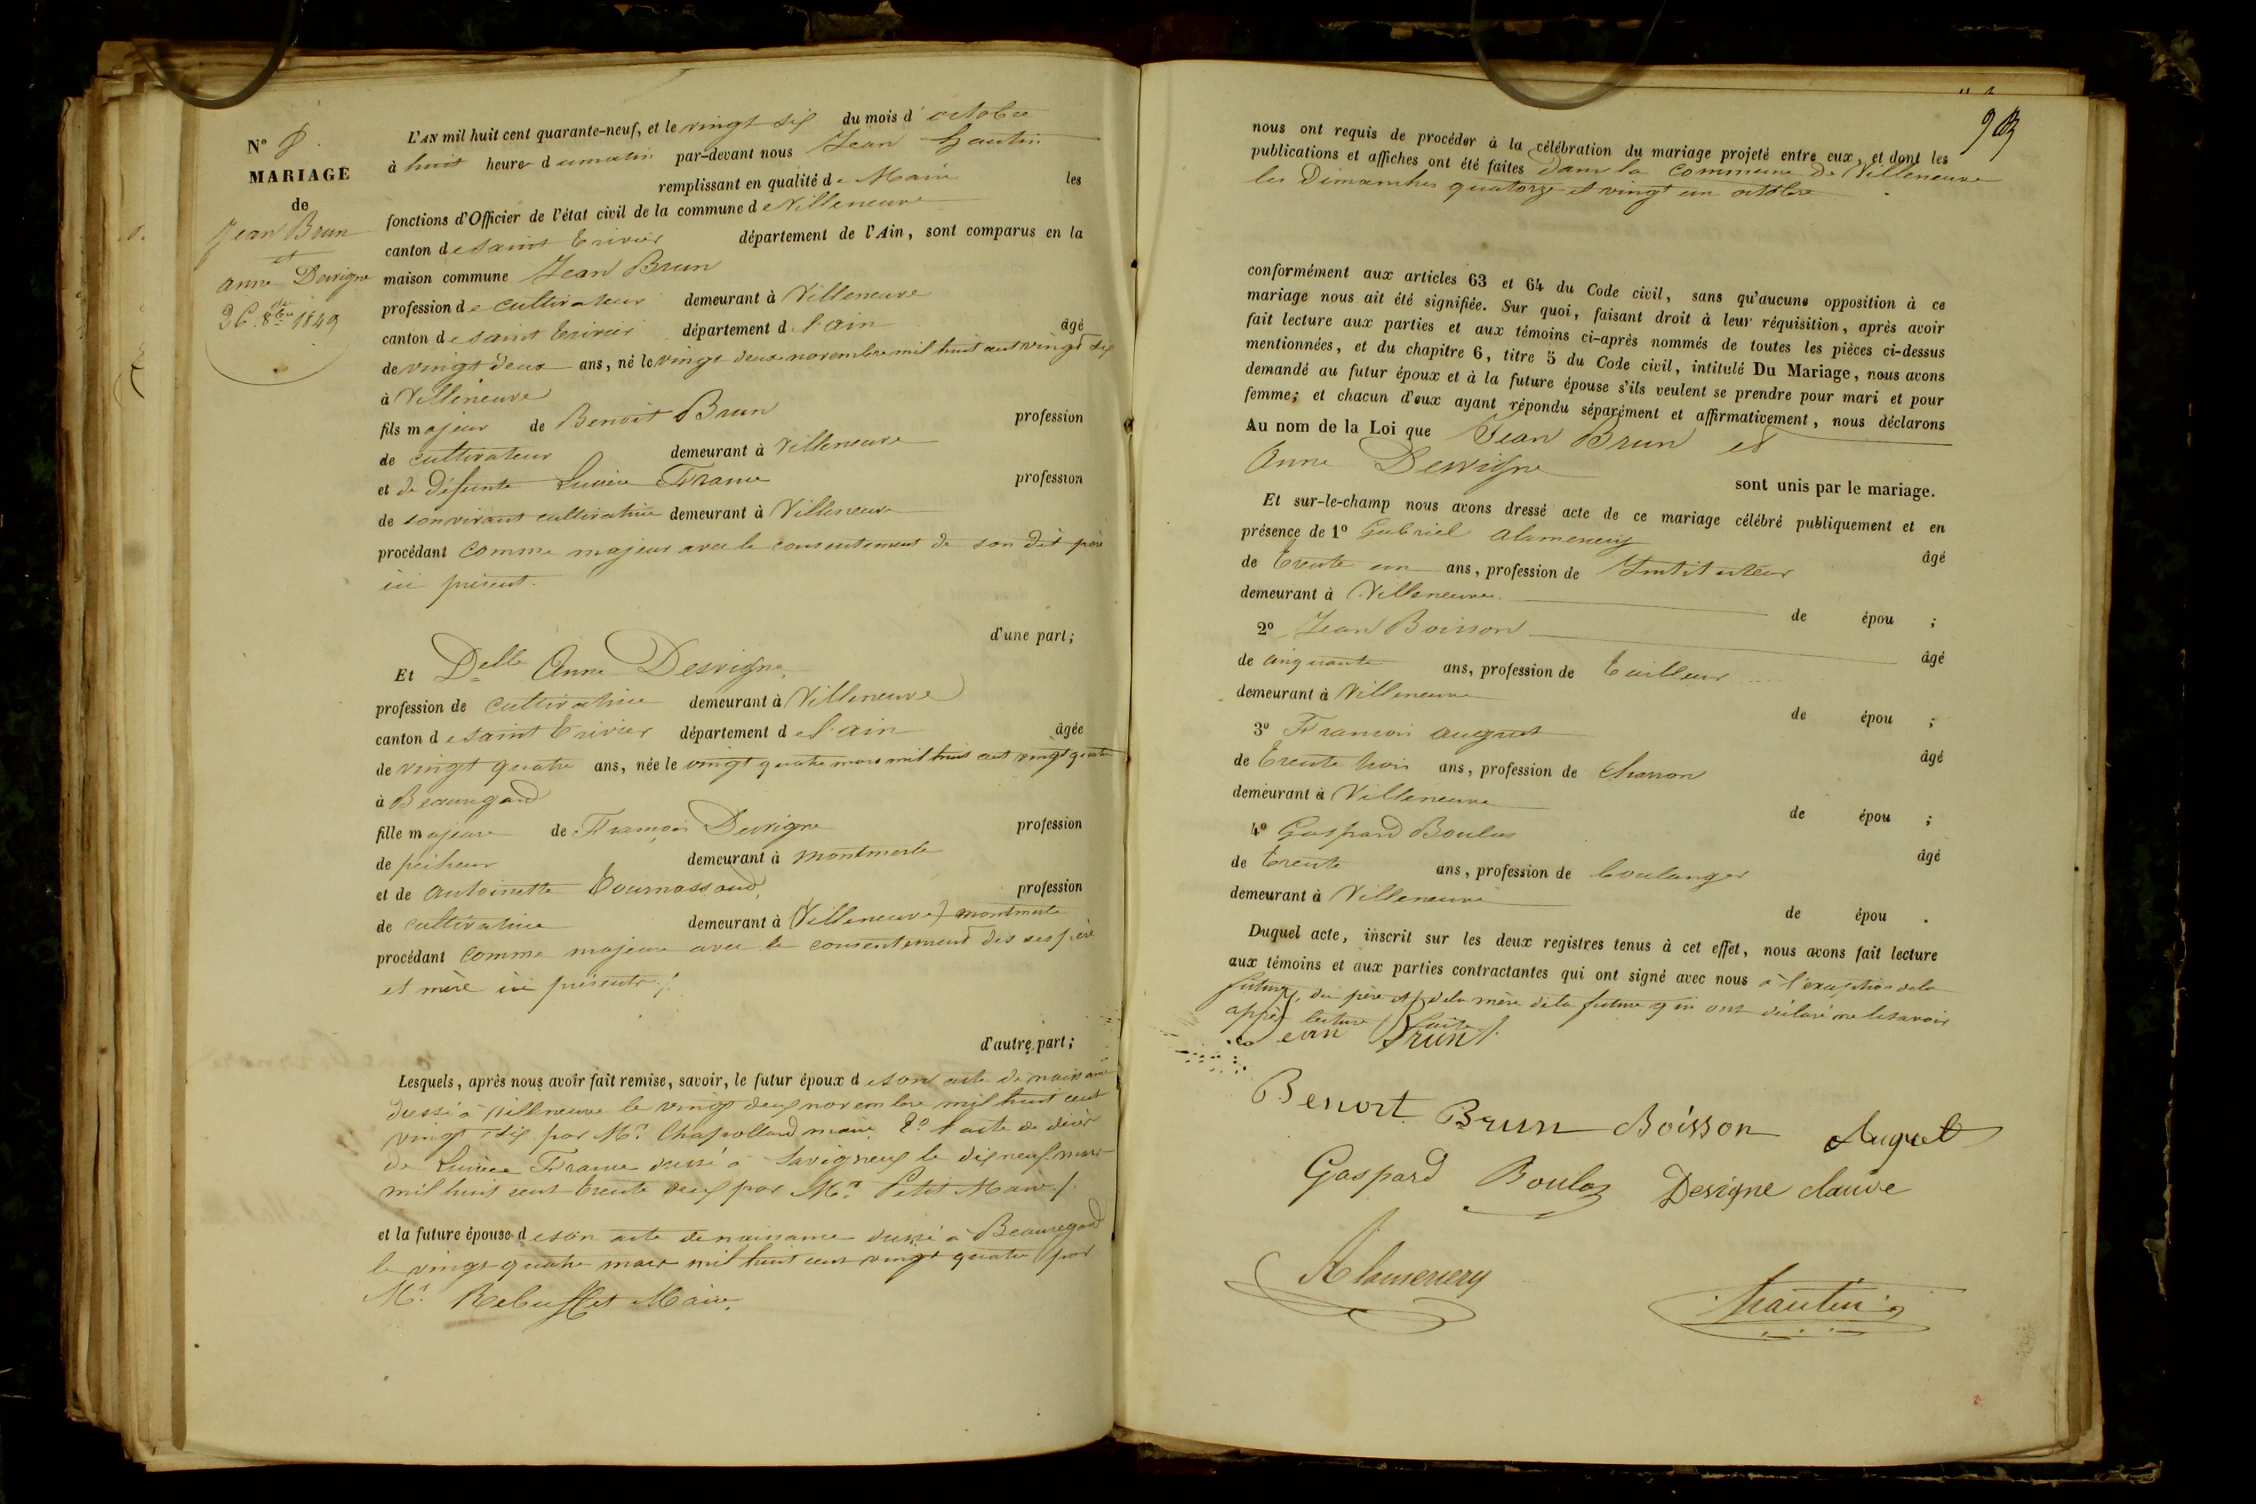 N° 8.
MARIAGE
de
Jean Brun
et
anne Desvigne
26 8bre 1849
L'AN mil huit cent quarante-neuf, et le vingt six du mois d'octobre
à huit heures du matin par-devant nous Jean Gautin
remplissant en qualité de Maire les
fonctions d'Officier de l'état civil de la commune de Villeneuve
canton de saint trivier département de l'Ain, sont comparus en la
maison commune Jean Brun
profession de cultivateur demeurant à Villeneuve
canton de saint trivier département de l'ain âgé
de vingt deux ans, né le vingt deux novembre mil huit cent vingt six
à Villeneuve
fils majeur de Benoit Brun profession
de cultivateur demeurant à Villeneuve
et de défunte France profession
de son vivant cultivatrice demeurant à Villeneuve
procédant comme majeur avec le consentement de son dit père
ici présent.
d'une part;
Et Delle Anne Desvigne,
profession de cultivatrice demeurant à Villeneuve
canton de saint trivier département de l'ain âgée
de vingt quatre ans, née le vingt quatre mars mil huit cent vingt quatre
à Beauregard
fille majeure de François Desvigne profession
de pêcheur demeurant à montmerle
et de antoinette tournassoud, profession
de cultivatrice demeurant à (Villeneuve) montmerle
procédant comme majeure avec le consentement des ses père
et mère ici présents /.
d'autre part;
Lesquels, après nous avoir fait remise, savoir, le futur époux de son acte de naissance
dressé à Villeneuve le vingt deux novembre mil huit cent
vingt six par Mr. Chapolard maire 2° l'acte de décès
de France dressé à Savigneux le dix neuf mars
mil huit cent trente deux par Mr. Petit Maire /.
et la future épouse de son acte de naissance dressé à Beauregard
le vingt quatre mars mil huit cent vingt quatre par
Mr. Rebuffet Maire.
93
nous ont requis de procéder à la célébration du mariage projeté entre eux, et dont les
publications et affiches ont été faites dans la commune de Villeneuve
les Dimanches quatorze et vingt un octobre
conformément aux articles 63 et 64 du Code civil, sans qu'aucune opposition à ce
mariage nous ait été signifiée. Sur quoi, faisant droit à leur réquisition, après avoir
fait lecture aux parties et aux témoins ci-après nommés de toutes les pièces ci-dessus
mentionnées, et du chapitre 6, titre 5 du Code civil, intitulé Du Mariage, nous avons
demandé au futur époux et à la future épouse s'ils veulent se prendre pour mari et pour
femme; et chacun d'eux ayant répondu séparément et affirmativement, nous déclarons
Au nom de la Loi que Jean Brun et
Anne Desvigne
sont unis par le mariage.
Et sur-le-champ nous avons dressé acte de ce mariage célébré publiquement et en
présence de 1° Gabriel alamenery âgé
de trente un ans, profession de Instituteur
demeurant à Villeneuve. de épou ;
2° Jean Boisson âgé
de cinquante ans, profession de tailleur
demeurant à Villeneuve de épou ;
3° François auguet âgé
de trente trois ans, profession de charron
demeurant à Villeneuve de épou ;
4° Gaspard Boulas âgé
de trente ans, profession de boulanger
demeurant à Villeneuve de épou .
Duquel acte, inscrit sur les deux registres tenus à cet effet, nous avons fait lecture
aux témoins et aux parties contractantes qui ont signé avec nous à l'exception de la
future, du père et de la mère de la future qui ont déclaré ne le savoir
après lecture faite /.
Jean Brun
Benoit Brun Boisson Auguet
Gaspard Boulas Designe claude
Alamenery
Gautin